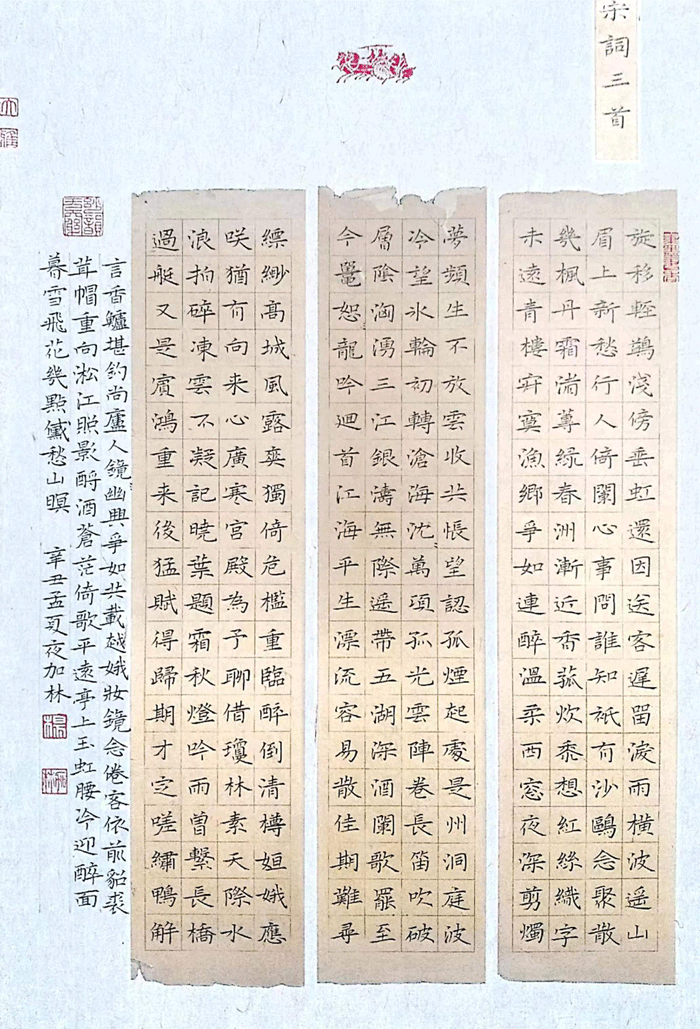 宋詞三首
旋移輕鷁淺傍垂虹還因送客遲留淚雨橫波遥山
眉上新愁行人倚闌心事問誰知祗有沙鷗念聚散
幾楓丹霜渚蓴綠春洲漸近香菰炊黍想紅絲織字
未遠青樓寂寞漁鄉爭如連醉溫柔西窓夜深剪燭
夢頻生不放雲收共悵望認孤煙起處是州洞庭波
冷望氷輪初轉滄海沈萬項孤光雲陣卷長笛吹破
層陰洶湧三江銀濤無際遥帶五湖深酒闌歌罷至
今鼉恕龍吟迴首江海平生漂流容易散佳期難尋
縹緲高城風露爽獨倚危檻重臨醉倒清樽姮娥應
咲猶有向来心廣寒宮殿為予聊借瓊林素天際水
浪拍碎凍雲不凝記曉葉題霜秋燈吟雨曾繫長橋
過艇又是賓鴻重来後猛賦得歸期才定嗟繡鴨解
言香鱸堪釣尚廬人鏡幽興爭如共載越娥妝鏡念倦客依前貂裘
茸帽重向淞江照影酹酒蒼茫倚歌平遠亭上玉虹腰冷迎醉面
暮雪飛花幾點黛愁山暝 辛丑孟夏夜加林